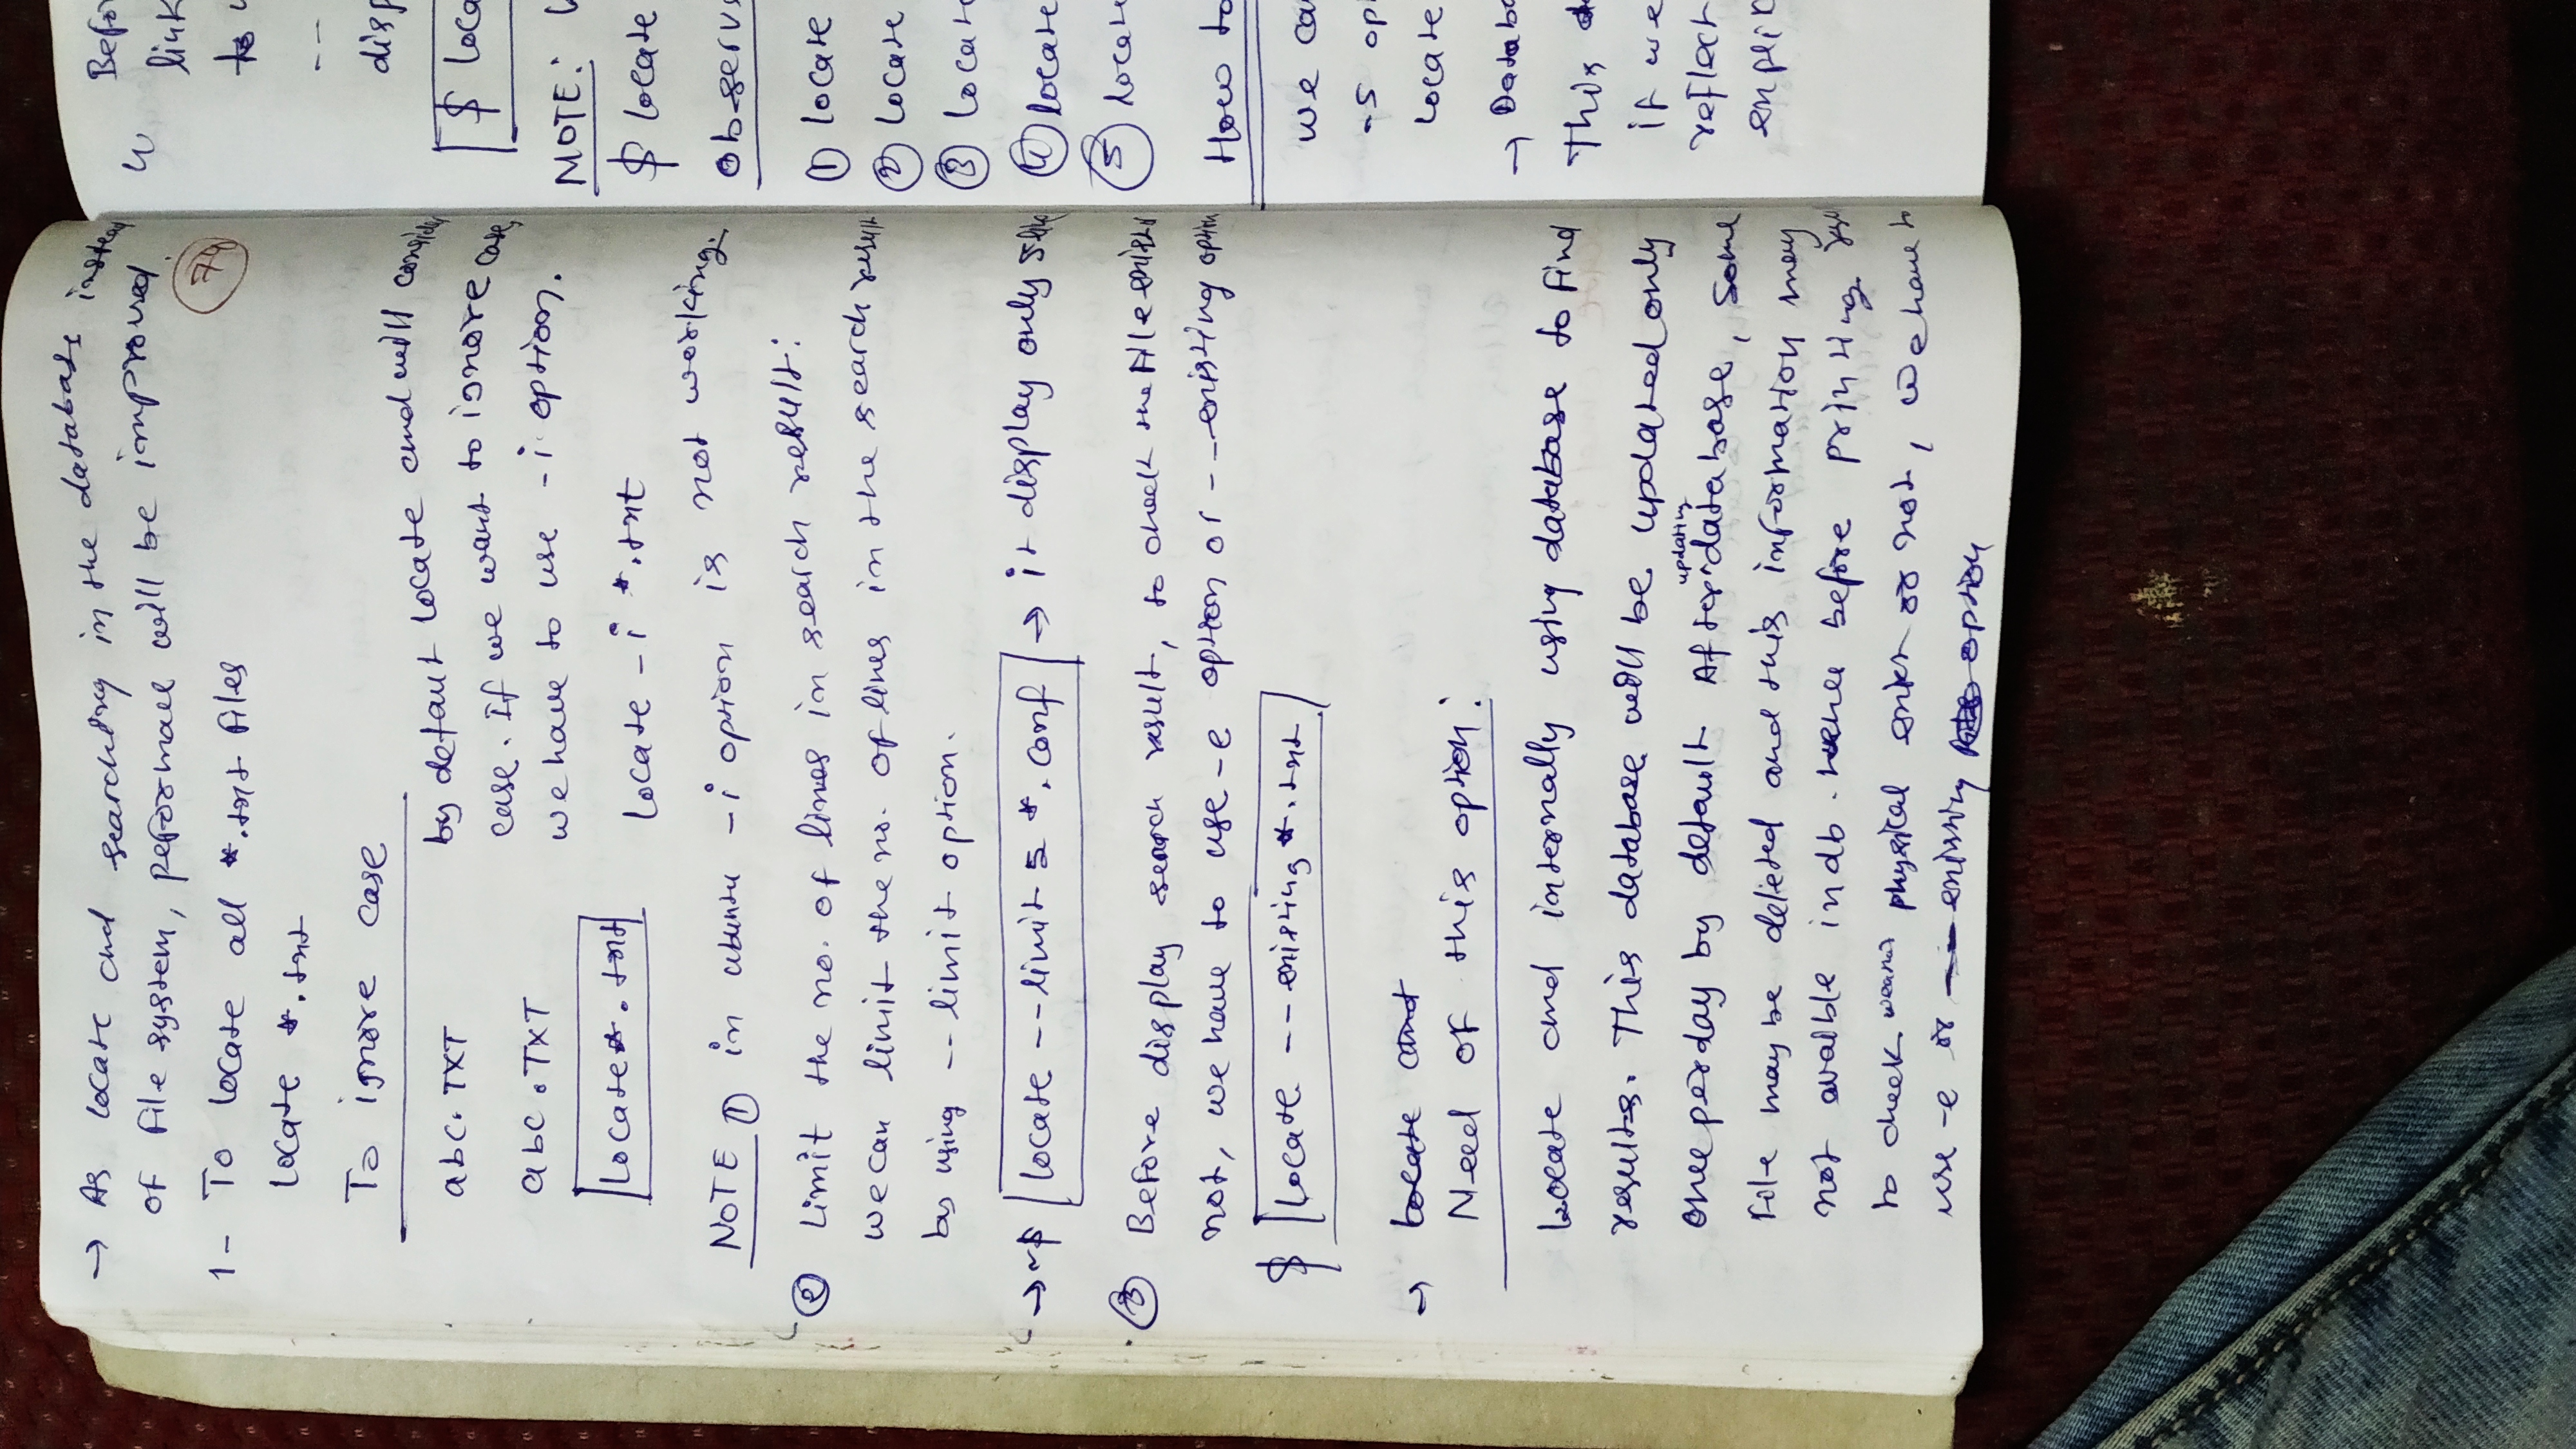 → As locate cmd searching in the database instead
of file system, peformace will be improved.
74
1- To locate all *.txt files
locate *.txt
To ignore case
abc.TXT
abc.TXT
locate *.txt
by defaut locate cmd will consider
case. If we want to ignore case,
we have to use -i option.
locate -i *.txt
NOTE ① in ubuntu -i option is not working.
② Limit the no. of lines in search result:
we can limit the no. of lines in the search result
by using --limit option.
→ ~$ locate --limit 5 *.conf → it display only 5 line
③ Before display search result, to check the file exist or
not, we have to use -e option or --existing option
$ locate --existing *.txt
→ locate cmd
Need of this option:
Locate cmd internally using database to find
results. This database will be updated only
once per day by default After updating database, some
file may be deleted and this information may
not avaible in db. Hence before printing
to check physical exist or not, we have to
use -e or --existing option
Befor
4)
link
to
--
disp
$ loca
NOTE:
$ locate
observ
① locate
② locate
③ locate
④ locate
⑤ locate
How to
we can
-S opt
locate
→ Databa
This
if we
reflect
explic